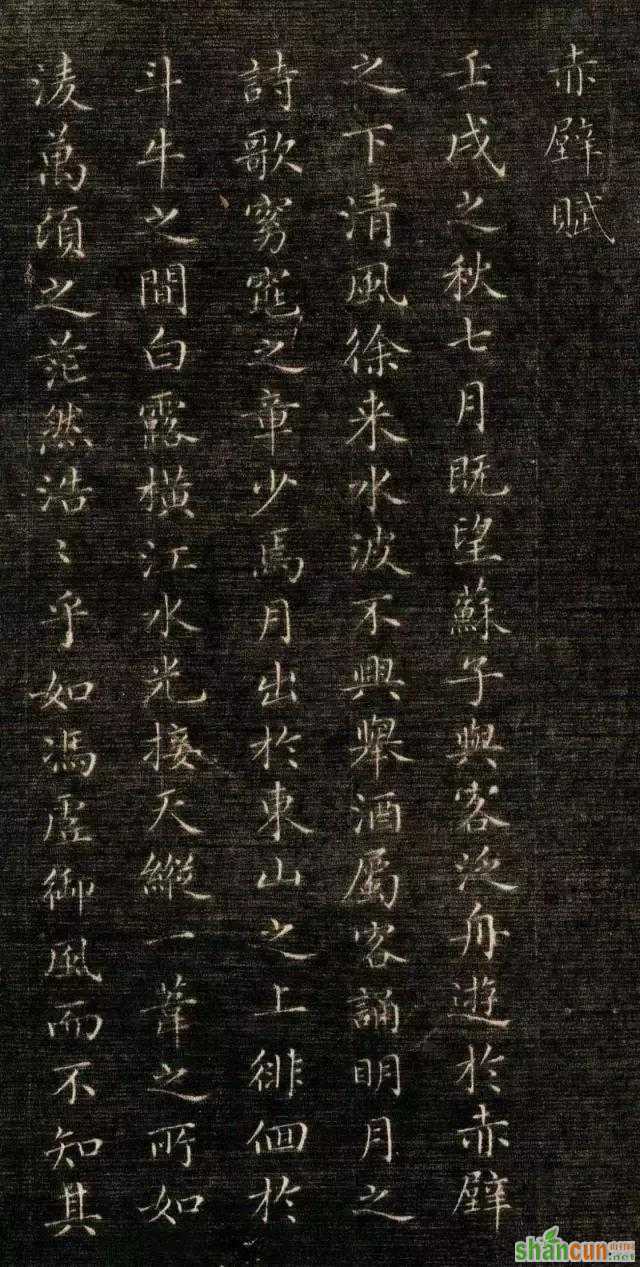 赤壁賦
壬戌之秋七月既望蘇子與客泛舟遊於赤壁
之下清風徐来水波不興舉酒屬客誦明月之
詩歌窈窕之章少焉月出於東山之上徘徊於
斗牛之間白露橫江水光接天縱一葦之所如
淩萬頃之茫然浩〻乎如馮虛御風而不知其
shancun